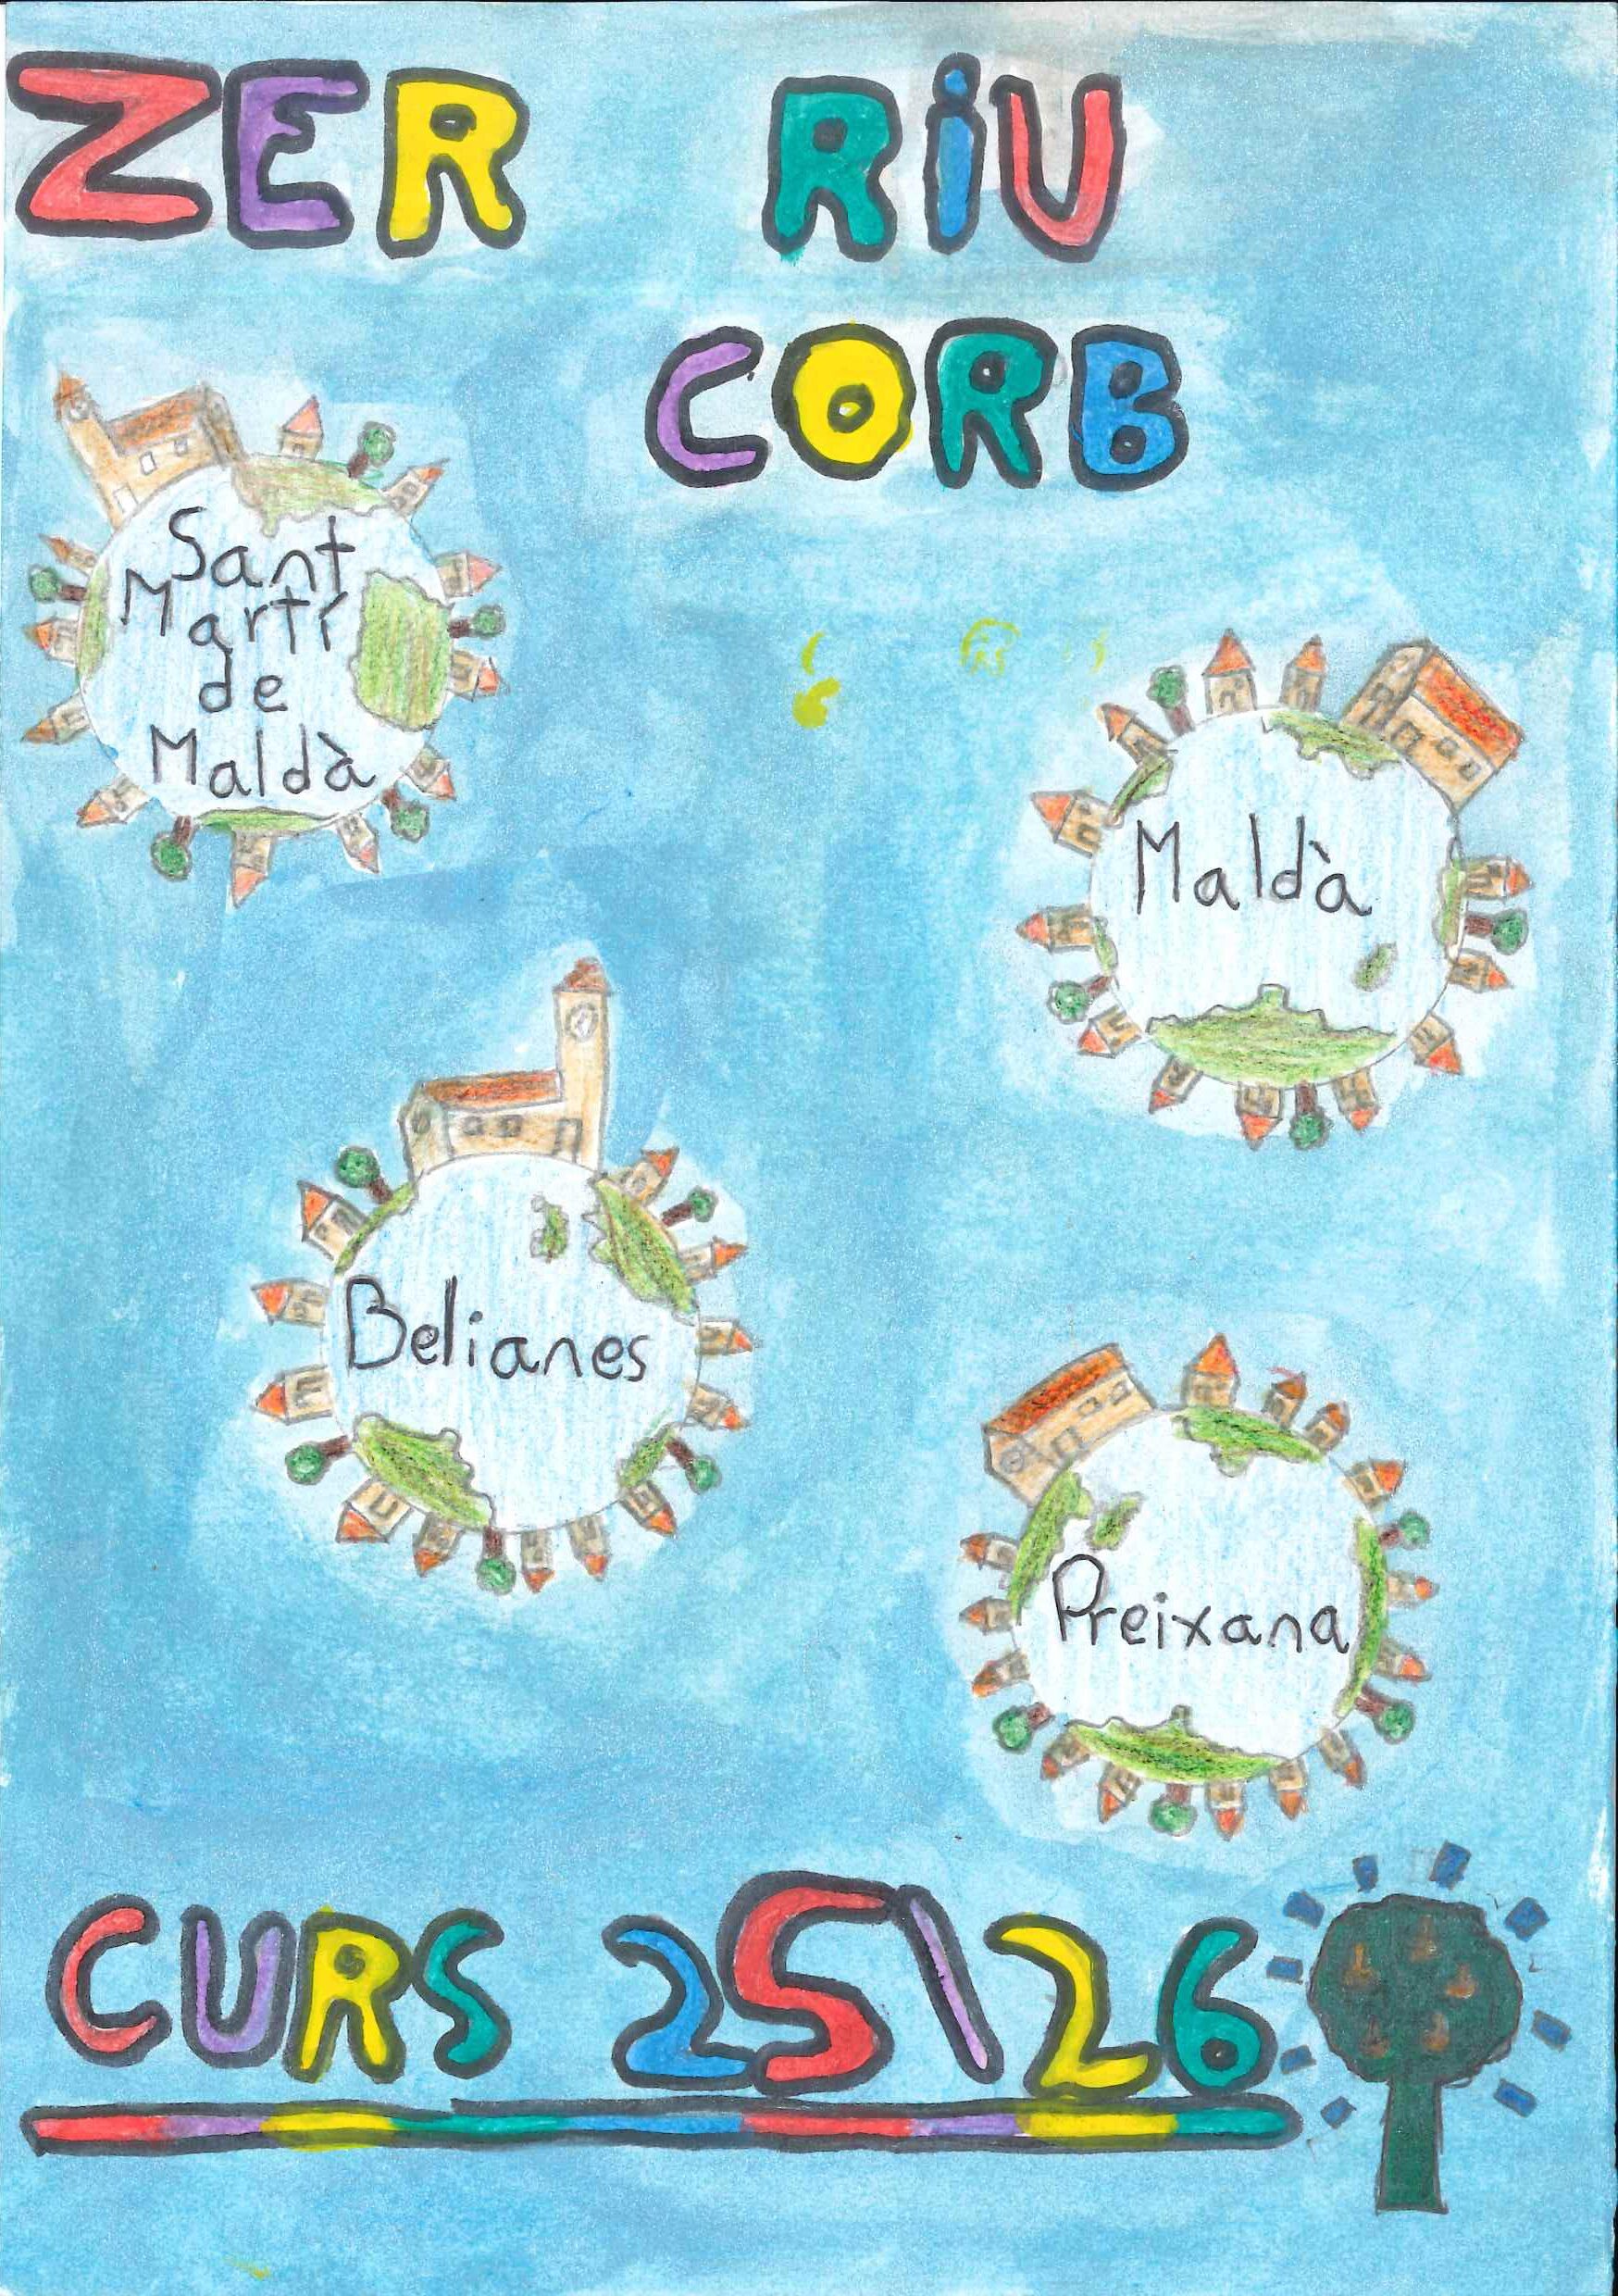 ZER RiU
CORB
Sant
Martí
de
Maldà
Maldà
Belianes
Preixana
CURS 25\26